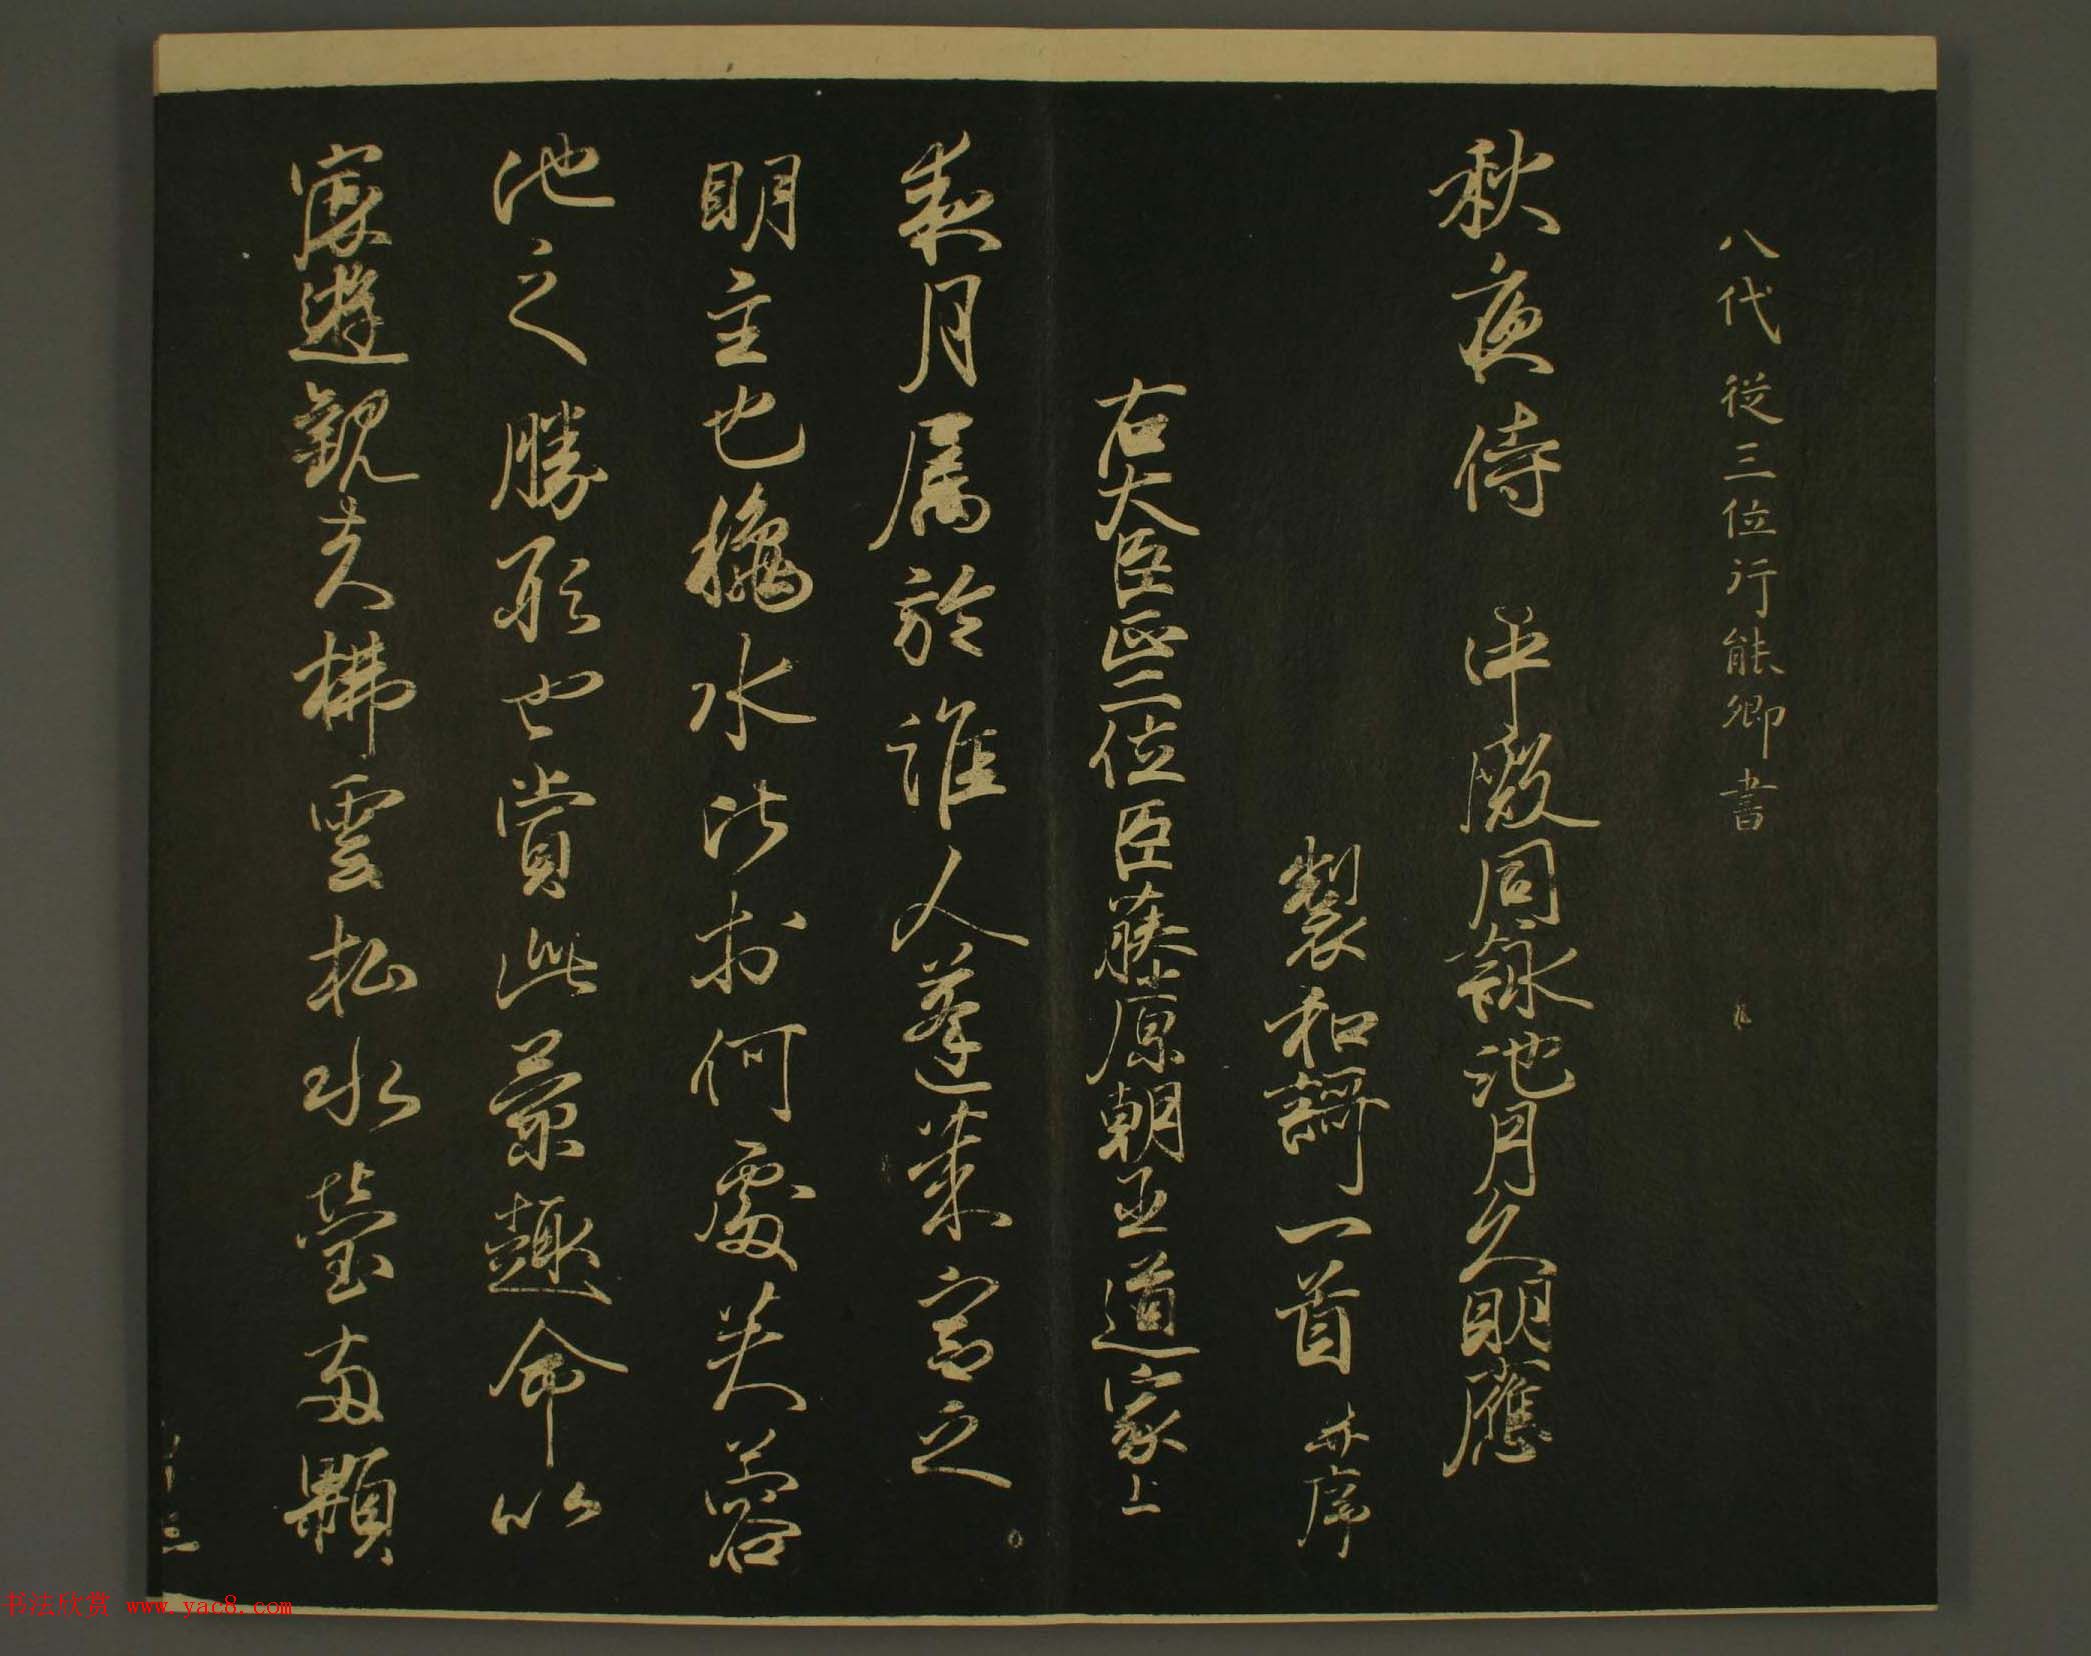 八代従三位行能卿書
秋夜侍　中殿同詠池月久明應
製和謌一首并序
右大臣正二位臣藤原朝臣道家上
夜月属於誰人蓬莱宮之
明主也穐水沽於何處芙蓉
池之勝形也賞此景趣命以
宴遊観夫拂雲松水瑩両顆
书法欣赏 www.yac8.com